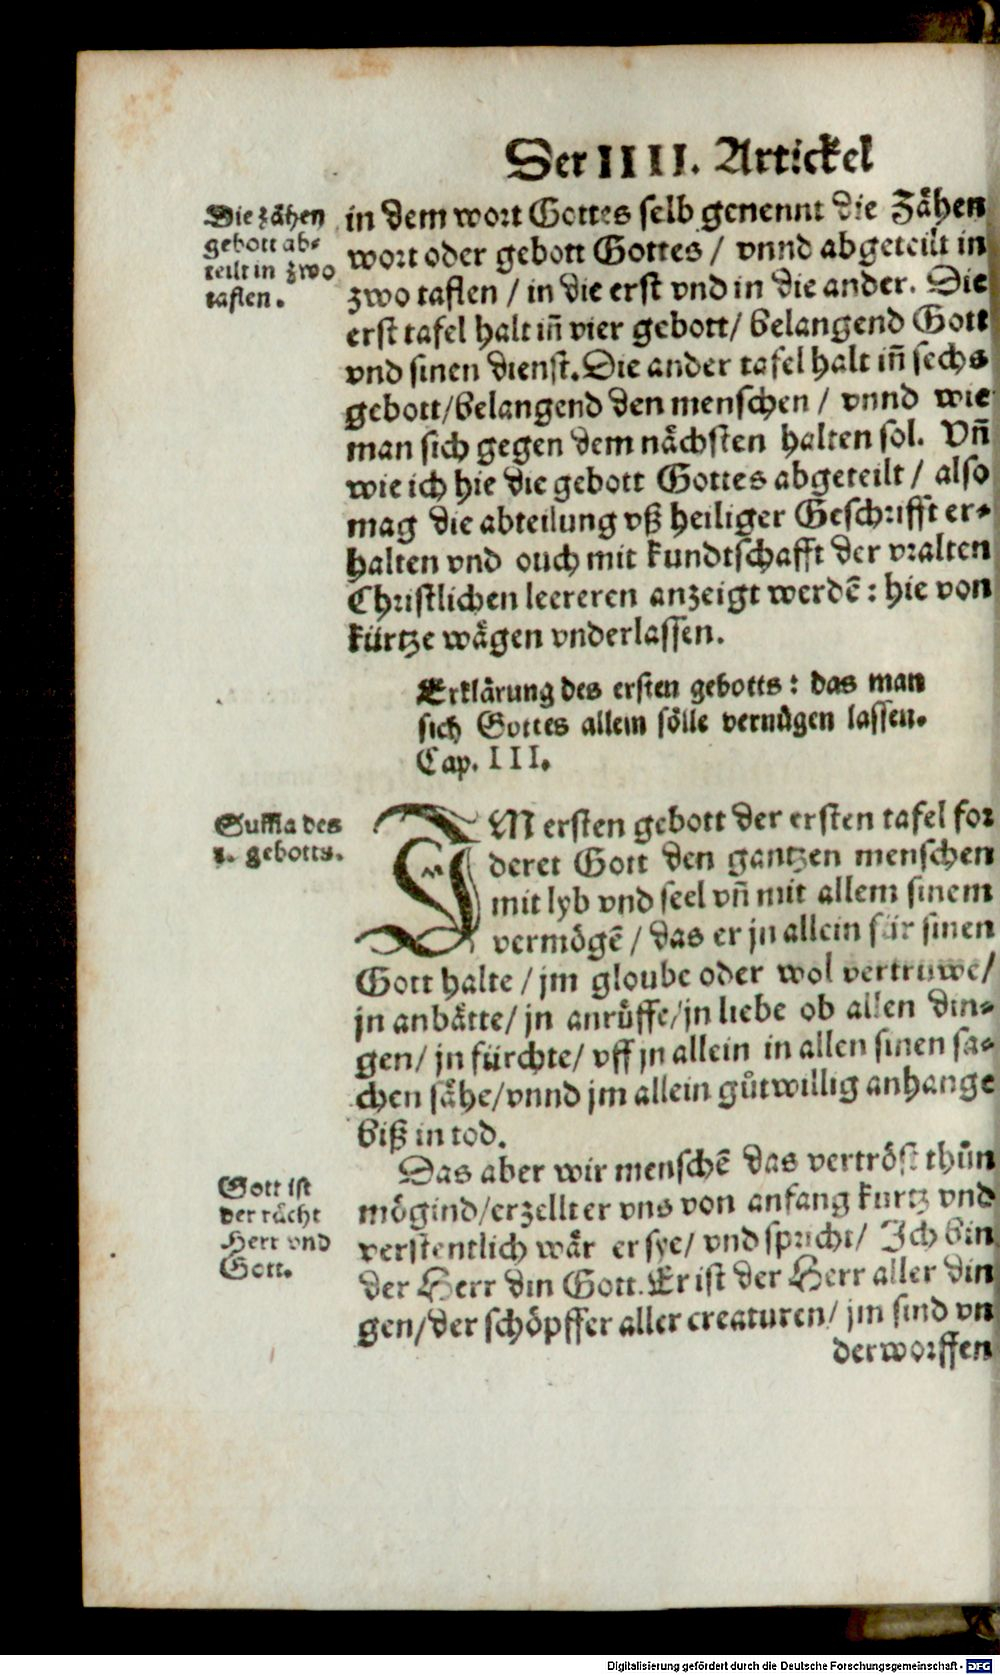 Der IIII. Artickel
Die zähen
gebott ab⸗
teilt in zwo
taflen.
in dem wort Gottes selb genennt die Zähen
wort oder gebott Gottes / vnnd abgeteilt in
zwo taflen / in die erst vnd in die ander. Die
erst tafel halt iñ vier gebott / belangend Gott
vnd sinen dienst. Die ander tafel halt iñ sechs
gebott / belangend den menschen / vnnd wie
man sich gegen dem nächsten halten sol. Vñ
wie ich hie die gebott Gottes abgeteilt / also
mag die abteilung vß heiliger Geschrifft er⸗
halten vnd ouch mit kundtschafft der vralten
Christlichen leereren anzeigt werdē: hie von
kürtze wägen vnderlassen.
Erklärung des ersten gebotts: das man
sich Gottes allein sölle vernügen lassen.
Cap. III.
Suma des
1. gebotts.
IM ersten gebott der ersten tafel for
deret Gott den gantzen menschen
mit lyb vnd seel vñ mit allem sinem
vermögē / das er jn allein für sinen
Gott halte / jm gloube oder wol vertruwe /
jn anbätte / jn anrüffe / jn liebe ob allen din⸗
gen / jn fürchte / vff jn allein in allen sinen sa⸗
chen sähe / vnnd jm allein gůtwillig anhange
biß in tod.
Gott ist
der rächt
Herr vnd
Gott.
Das aber wir menschē das vertröst thůn
mögind / erzellt er vns von anfang kurtz vnd
verstentlich wär er sye / vnd spricht / Ich bin
der Herr din Gott. Er ist der Herr aller din
gen / der schöpffer aller creaturen / jm sind vn
derworffen
Digitalisierung gefördert durch die Deutsche Forschungsgemeinschaft - DFG